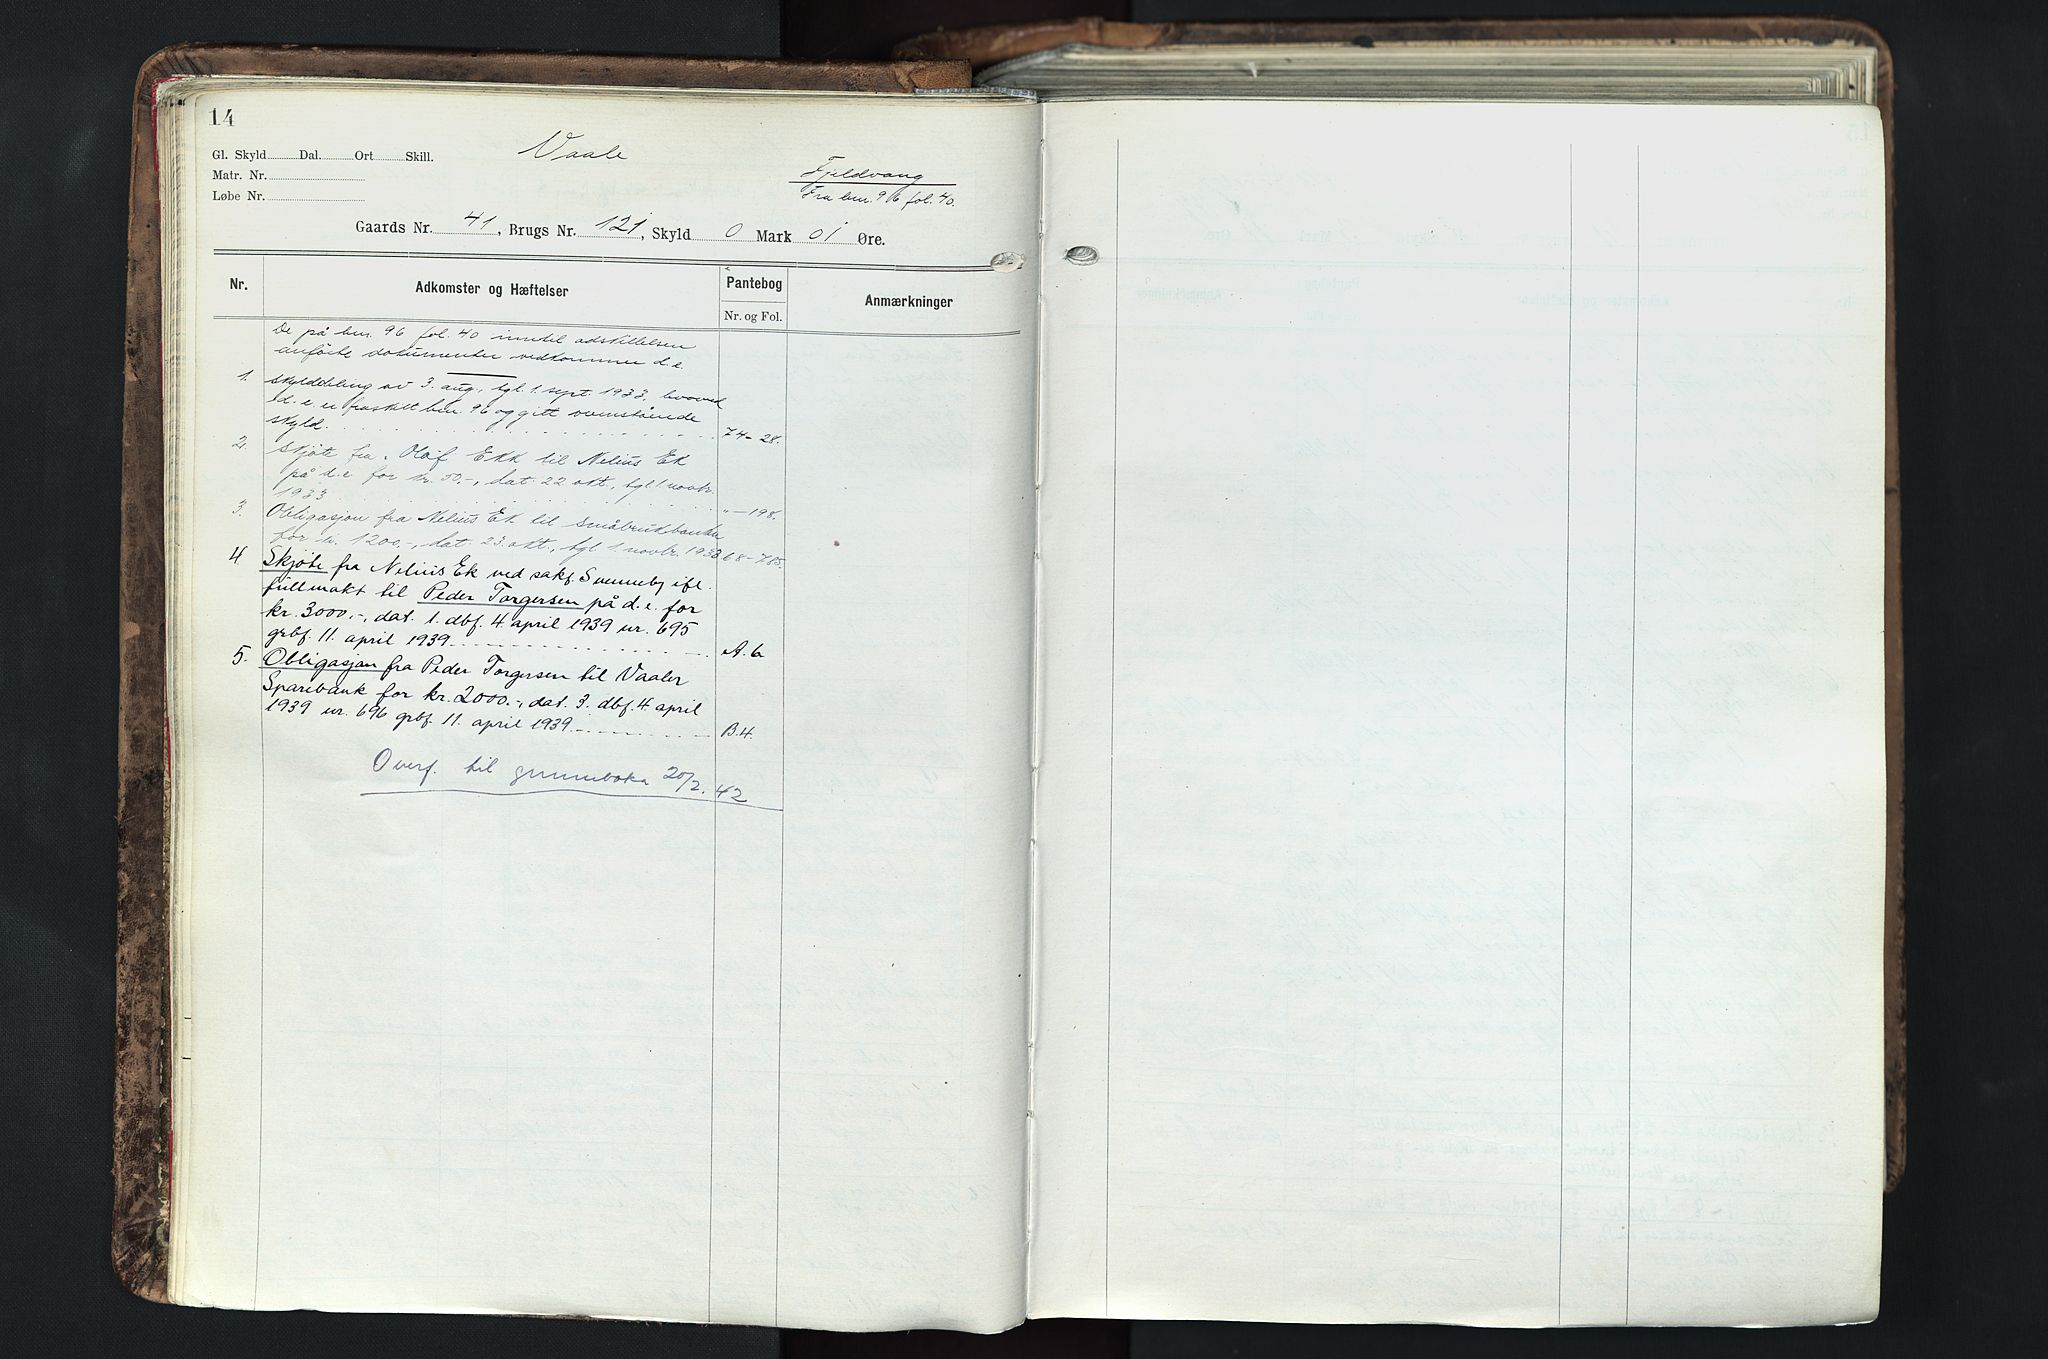 14
Gl. Skyld Dal. Ort Skill.
Matr. Nr.
Løbe Nr.
Vaale
Fjeldvang
Fra bnr. 96 fol. 40.
Gaards Nr. 41, Brugs Nr. 121, Skyld 0 Mark 01 Øre.
Nr. Adkomster og Hæftelser Pantebog Nr. og Fol. Anmærkninger
De på bnr. 96 fol. 40 inntil adskillelsen
anførte dokumenter vedkommer d.e.
1. Skylddeling av 3. aug., tgl. 1. sept. 1933, hvorved
d.e. er fraskilt bnr. 96 og gitt ovenstående
skyld. 74-28.
2. Skjøte fra Olaf Ekk til Nelius Ek
på d.e for kr. 50.-, dat. 22 okt., tgl. 1. novbr.
1933 "-198.
3. Obligasjon fra Nelius Ek til Småbrukbanken
for kr. 1200.-, dat. 23. okt., tgl. 1. novbr. 1933 68-785.
4 Skjøte fra Nelius Ek ved sakf. Svenneby ifl.
fullmakt til Peder Torgersen på d.e. for
kr. 3000.-, dat. 1. dbf. 4. april 1939 nr. 695
grbf. 11. april 1939 A. 6
5. Obligasjon fra Peder Torgersen til Vaaler
Sparebank for kr. 2000.-, dat. 3. dbf. 4. april
1939 nr. 696 grbf. 11. april 1939 B. 4.
Overf. til grunnboka 20/2. 42